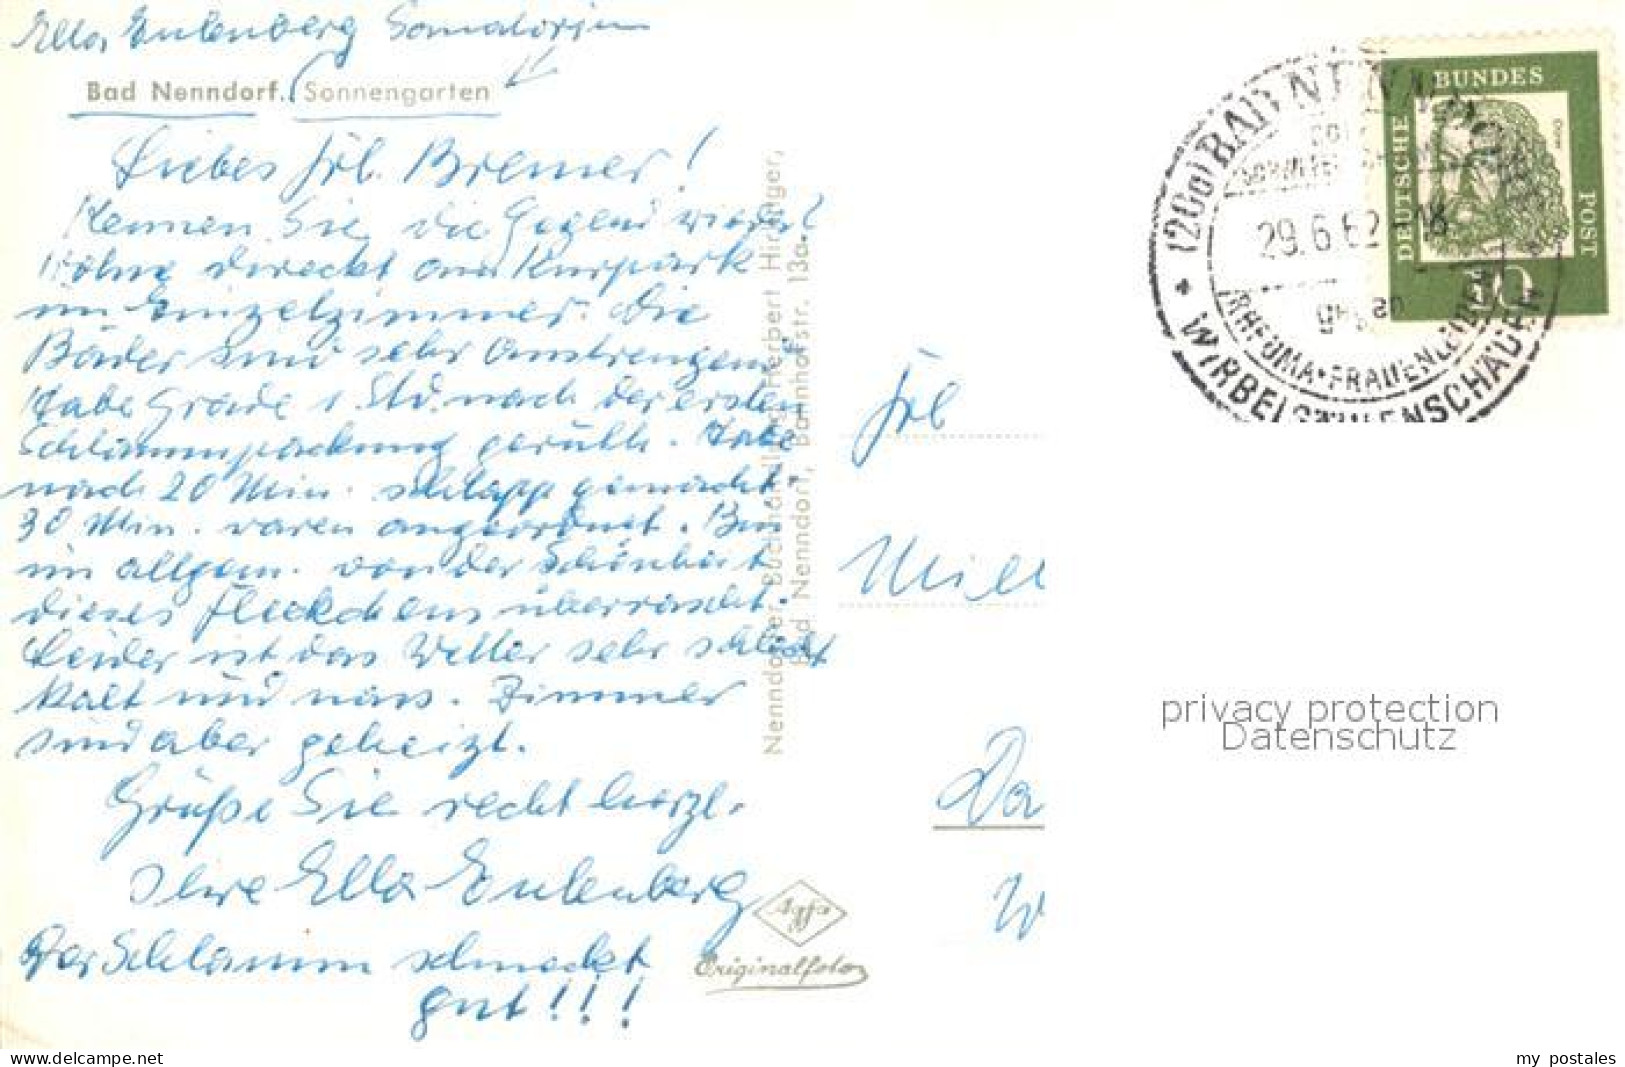 Ella Eulenberg Sanatorium
Bad Nenndorf. (Sonnengarten
Liebes Frl. Bremer!
Kennen Sie die Gegend wieder?
Wohne direckt am Kurpark
im Einzelzimmer. Die
Bäder sind sehr anstrengend
Habe Grade 1. Std. nach der ersten
Schlammpackung geruht. Habe
nach 20 Min. schlapp gemacht.
30 Min. waren angeordnet. Bin
im allgem. von der Schönheit
dieses Fleckchens überrascht.
Leider ist das Wetter sehr schlecht
kalt und nass. Zimmer
sind aber geheizt.
Grüße Sie recht herzl.
Ihre Ella Eulenberg
Der Schlamm schmeckt
gut!!!
Nenndorfer Buchhandlung Herbert Hirdinger,
Bad Nenndorf, Bahnhofstr. 13a.
Agfa
Originalfoto
Frl
Da
W
(20a) BAD NENNDORF
29.6.62-18
RHEUMA•FRAUENLEIDEN
WIRBELSÄULENSCHÄDEN
DEUTSCHE
BUNDES
POST
privacy protection
Datenschutz
www.oldthing.de
my postales